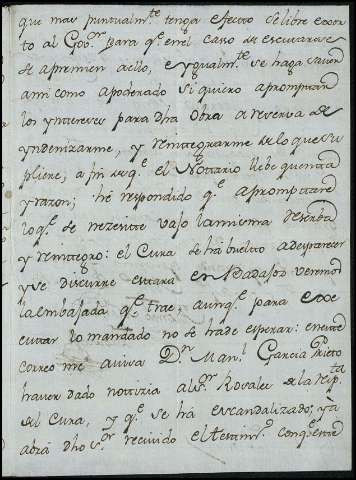 que mas puntualm.te tenga efecto se libre exor
to al Gov.or para q.e en el caso de escusarse
se apremien a ello, e ygualm.te se haga saver
a mi como apoderado si quiero apromptar
los yntereses para dha obra a reserva de
yndemizarme, y reintegrarme de lo que su
pliere; a fin de q.e el Nottario llebe quenta
y razon; hé respondido q.e aprompttaré
lo q.e se nezesite vajo la misma reserba
y reintegro: el Cura se há buelto a desparezer
y se discurre estará en Badajoz veremos
la embajada q.e trae, aunq.e para exe
cutar lo mandado no se ha de esperar: en este
correo me aviva D.n Man.l Garcia Prieto
haver dado notizia al S.r Rosales de la
del Cura, y q.e se há escandalizado; y ya
abrá dho S.r recivido el testim.o